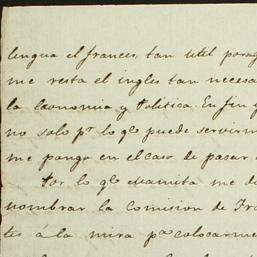 lengua el frances, tan util para
me resta el ingles tan necesa
la Economia y Politica. En fin y
no solo pr. lo qe. puede servirm
me pongo en el caso de pasar
Por lo qe. Mamita me d
nombrar la Comision de Fra
tes á la mira pa. colocarme